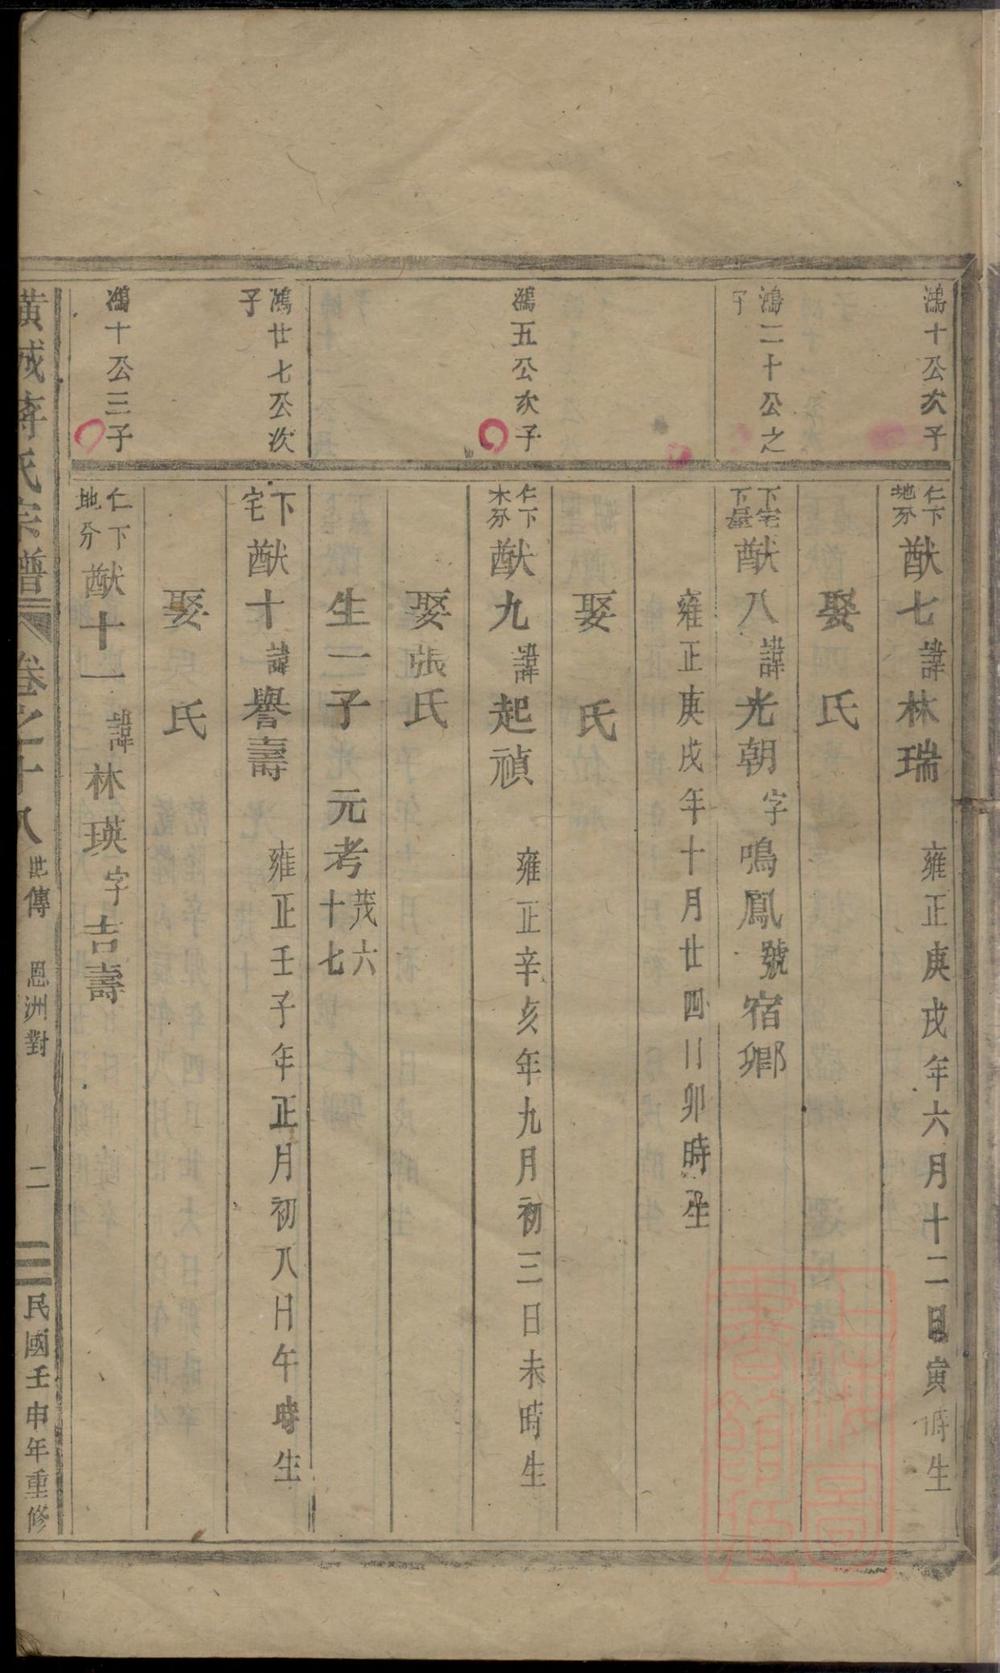 鴻十公次子
仁下地分猷七諱林瑞 雍正庚戌年六月十二日寅時生
娶 氏
鴻二十公之子
下宅下邑猷八諱光朝字鳴鳳號宿卿
雍正庚戌年十月廿四日卯時生
娶 氏
鴻五公次子
仁下木分猷九諱起禎 雍正辛亥年九月初三日未時生
娶張氏
生一子 元考茂六十七
鴻廿七公次子
下宅猷十諱譽壽 雍正壬子年正月初八日午時生
娶 氏
鴻十公三子
仁下地分猷十一諱林瑛字吉壽
橫城蔣氏宗譜 卷之十八 世傳 恩洲對 二 民國壬申年重修
上海圖書館藏